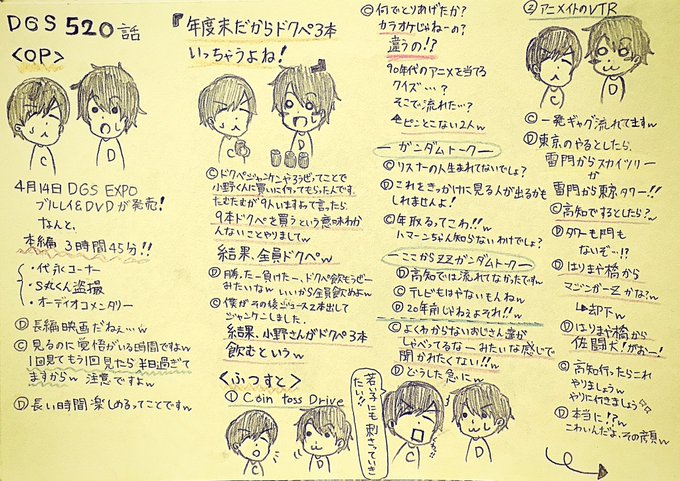 DGS 520話
<OP>
C
D
4月14日DGS EXPO
ブルレイ&DVDが発売!
なんと、
本編 3時間45分!!
・代永コーナー
・S丸くん盗撮
・オーディオコメンタリー
D 長編映画だねぇ…w
C 見るのに覚悟がいる時間ですw
1回見てもう1回見たら半日過ぎて
ますからw 注意ですよw
D 長い時間楽しめるってことですw
『年度末だからドクペ3本
いっちゃうよね!』
C
D
C ドクペジャンケンやろうぜってことで
小野くんに買いに行ってもらったんです。
たむたむが9人いますねって言ったら、
9本ドクペを買うという意味わか
んないことやりましてw
結果、全員ドクペw
D 勝ったー負けたー、ドクペ飲もうぜー
みたいなw いいから全員飲めよw
C 僕がその後ジュース2本出して
ジャンケンしました。
結果、小野さんがドクペ3本
飲むというw
<ふつすと>
① Coin toss Drive
C
D
C 何でとりあげたか?
カラオケじゃねーの?
違うの!?
90年代のアニメを当てる
クイズ…?
そこで流れた…?
ピンとこない2人w
ガンダムトーク
C リスナーの人生まれてないでしょ?
D これをきっかけに見る人が出るかも
しれませんよ!
C 年取るってこわ!!w
ハマーンちゃん知らないわけでしょ?
ここからZZガンダムトーク
D 高知では流れてなかたです
C テレビもはやないもんねw
D 20年前じゃねぇよそれ!!w
C よくわからないおじさん達が
しゃべってるなーみたいな感じで
聞かれたくない!!w
D どうした急にw
若い子にも刺さっていき
たい!!
C
D
② アニメイトのVTR
C
D
C 一発ギャグ流れてますw
D 東京のやるとしたら、
雷門からスカイツリー
が
雷門から東京タワー!!
C 高知でするとしたら?w
D タワーも門も
ないぞ…!?
D はりまや橋から
マジンガーZかな?w
↳却下w
D はりまや橋から
佐闘犬!がおー!
C 高知行ったらこれ
やりましょうw
やりに行きましょう
D 本当に!?w
こわいんだよ、その顔w